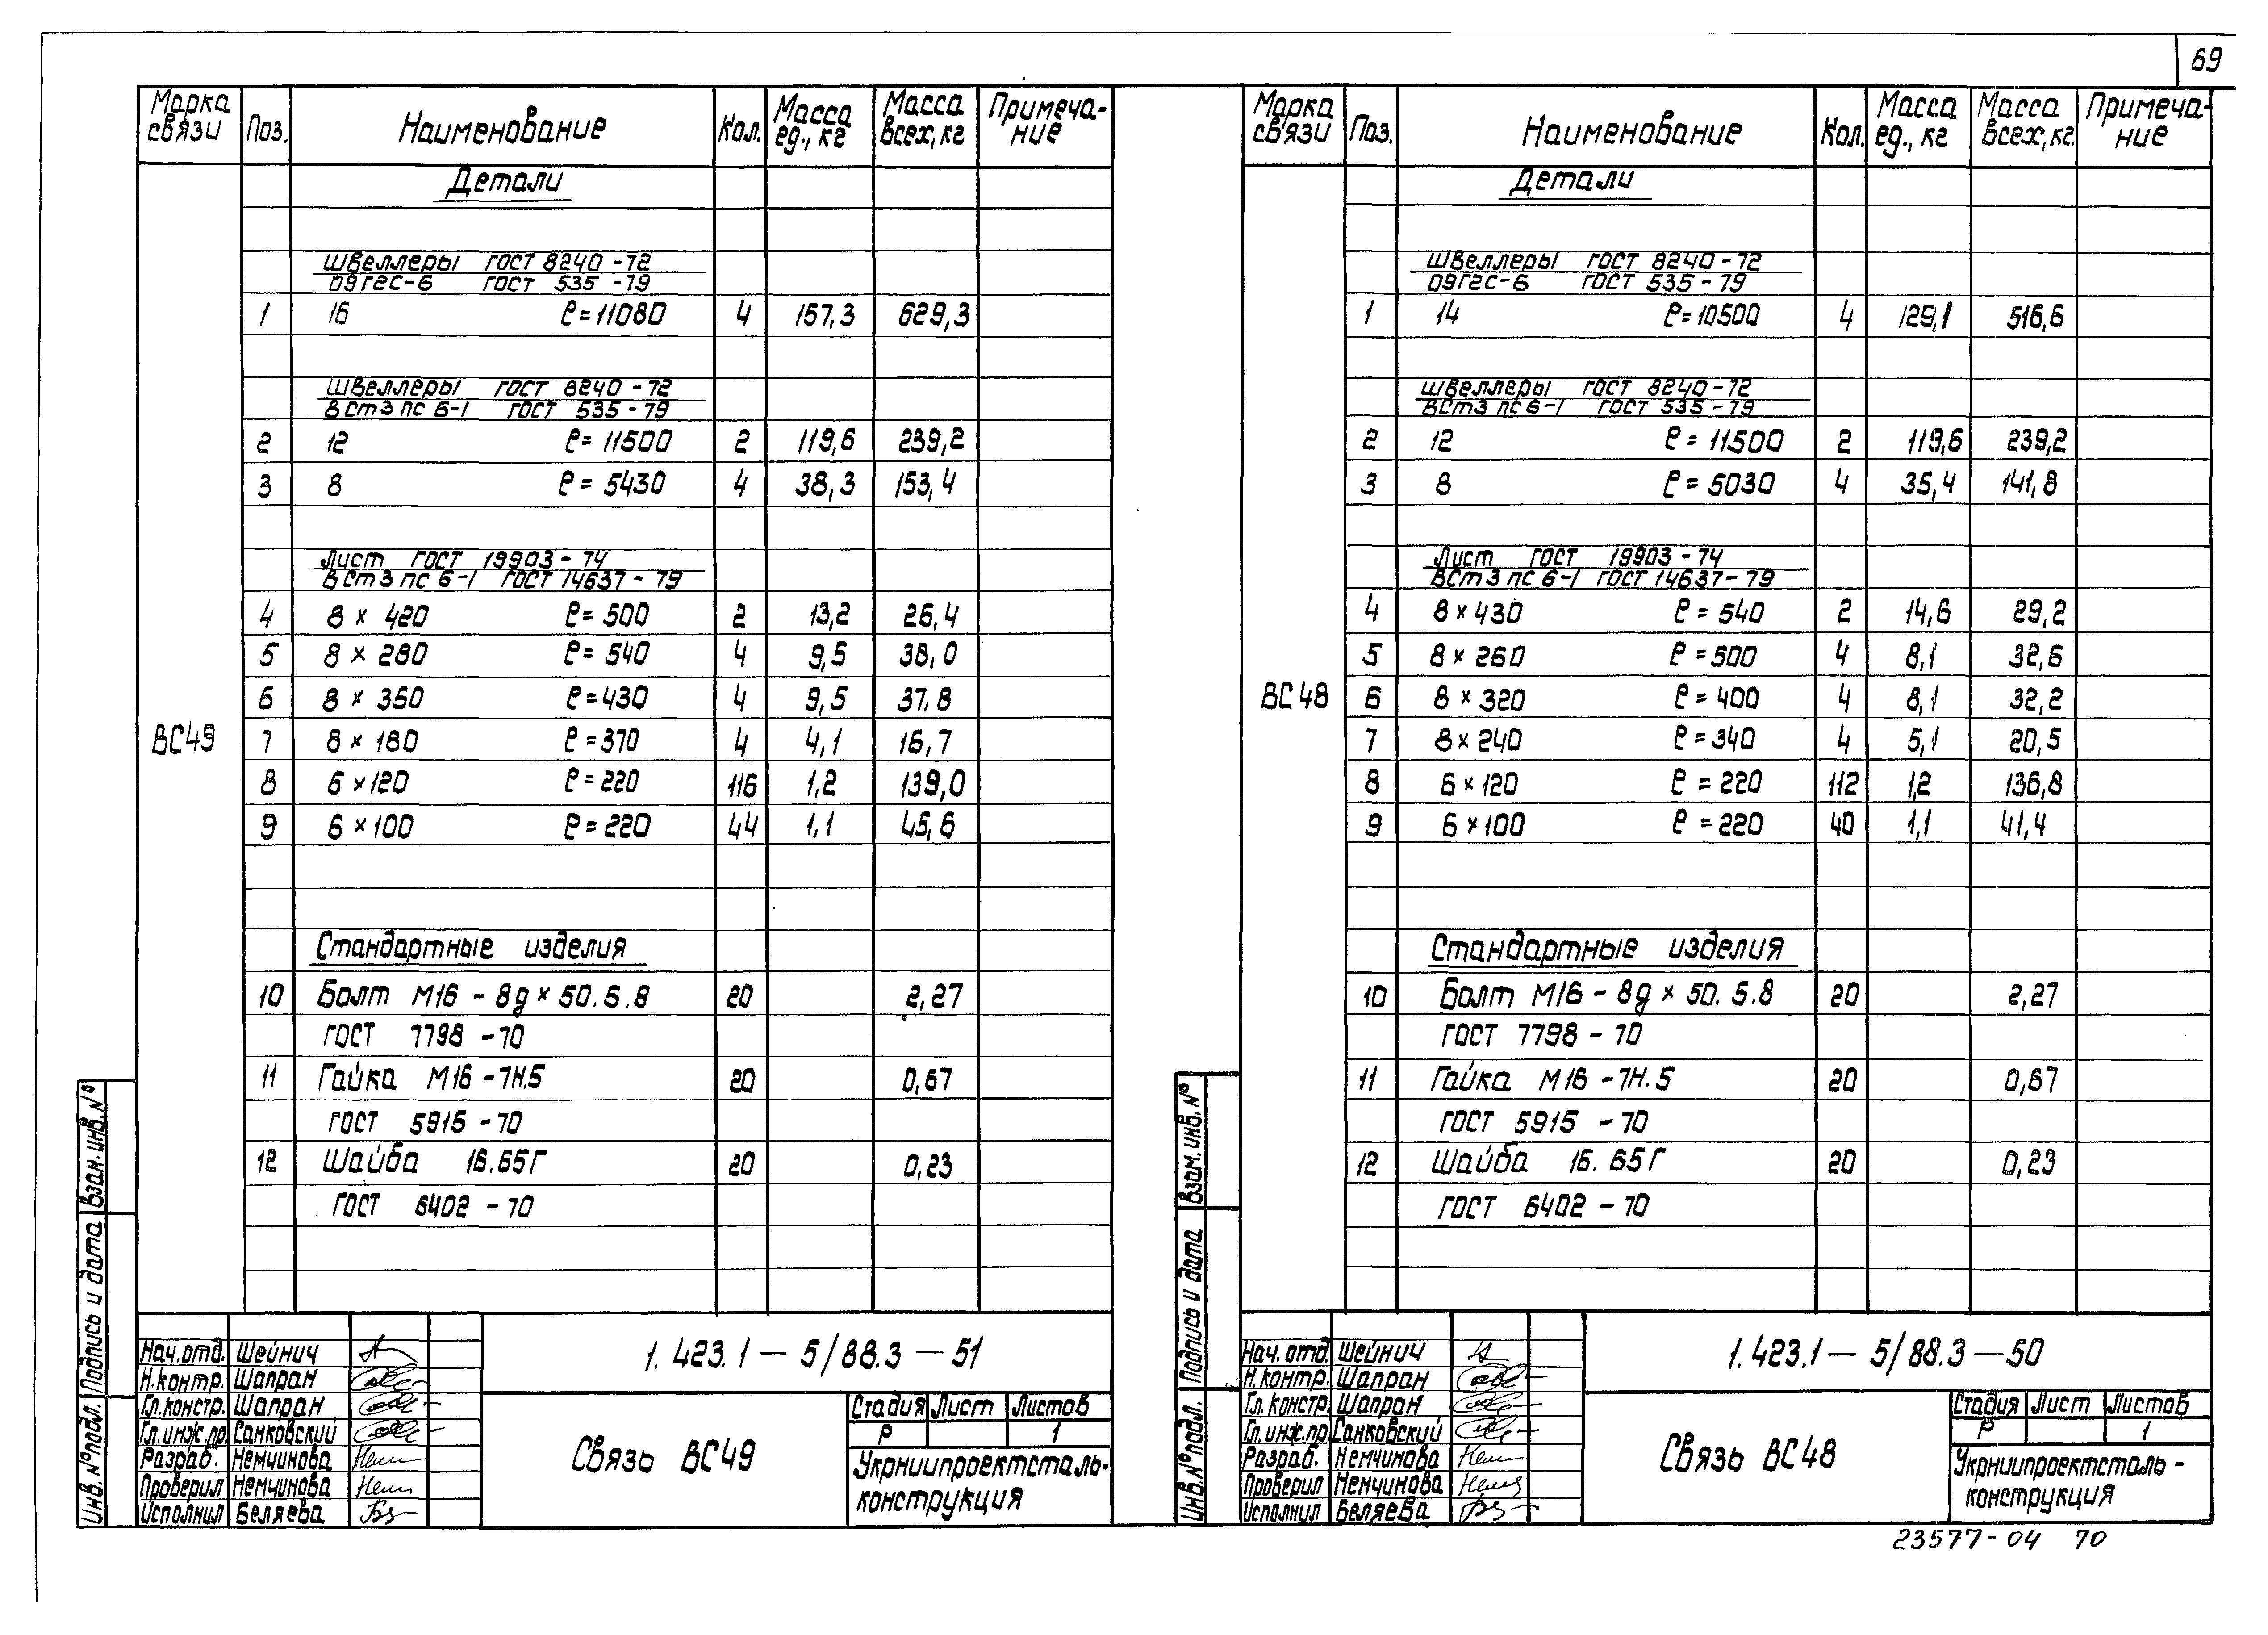 69
Марка связи Поз. Наименование Кол. Масса ед., кг Масса всех, кг Примеча-ние
Детали
Швеллеры ГОСТ 8240-72
09Г2С-6 ГОСТ 535-79
1 16 ℓ=11080 4 157,3 629,3
Швеллеры ГОСТ 8240-72
ВСт3пс6-1 ГОСТ 535-79
2 12 ℓ=11500 2 119,6 239,2
3 8 ℓ=5430 4 38,3 153,4
Лист ГОСТ 19903-74
ВСт3пс6-1 ГОСТ 14637-79
4 8×420 ℓ=500 2 13,2 26,4
5 8×280 ℓ=540 4 9,5 38,0
6 8×350 ℓ=430 4 9,5 37,8
ВС49 7 8×180 ℓ=370 4 4,1 16,7
8 6×120 ℓ=220 116 1,2 139,0
9 6×100 ℓ=220 44 1,1 45,6
Стандартные изделия
10 Болт М16-8g×50.5.8 20 2,27
ГОСТ 7798-70
11 Гайка М16-7Н.5 20 0,67
ГОСТ 5915-70
12 Шайба 16.65Г 20 0,23
ГОСТ 6402-70
Инв.№подл. Подпись и дата Взам.инв.№
Нач.отд. Шейнич
Н.контр. Шапран
Гл.констр. Шапран
Гл.инж.пр. Санковский
Разраб. Немчинова
Проверил Немчинова
Исполнил Беляева
1.423.1-5/88.3-51
Связь ВС49
Стадия Лист Листов
Р 1
Укрниипроектсталь-
конструкция
Марка связи Поз. Наименование Кол. Масса ед., кг Масса всех, кг. Примеча-ние
Детали
Швеллеры ГОСТ 8240-72
09Г2С-6 ГОСТ 535-79
1 14 ℓ=10500 4 129,1 516,6
Швеллеры ГОСТ 8240-72
ВСт3пс6-1 ГОСТ 535-79
2 12 ℓ=11500 2 119,6 239,2
3 8 ℓ=5030 4 35,4 141,8
Лист ГОСТ 19903-74
ВСт3пс6-1 ГОСТ 14637-79
4 8×430 ℓ=540 2 14,6 29,2
5 8×260 ℓ=500 4 8,1 32,6
ВС48 6 8×320 ℓ=400 4 8,1 32,2
7 8×240 ℓ=340 4 5,1 20,5
8 6×120 ℓ=220 112 1,2 136,8
9 6×100 ℓ=220 40 1,1 41,4
Стандартные изделия
10 Болт М16-8g×50.5.8 20 2,27
ГОСТ 7798-70
11 Гайка М16-7Н.5 20 0,67
ГОСТ 5915-70
12 Шайба 16.65Г 20 0,23
ГОСТ 6402-70
Инв.№подл. Подпись и дата Взам.инв.№
Нач.отд. Шейнич
Н.контр. Шапран
Гл.констр. Шапран
Гл.инж.пр. Санковский
Разраб. Немчинова
Проверил Немчинова
Исполнил Беляева
1.423.1-5/88.3-50
Связь ВС48
Стадия Лист Листов
Р 1
Укрниипроектсталь-
конструкция
23577-04 70